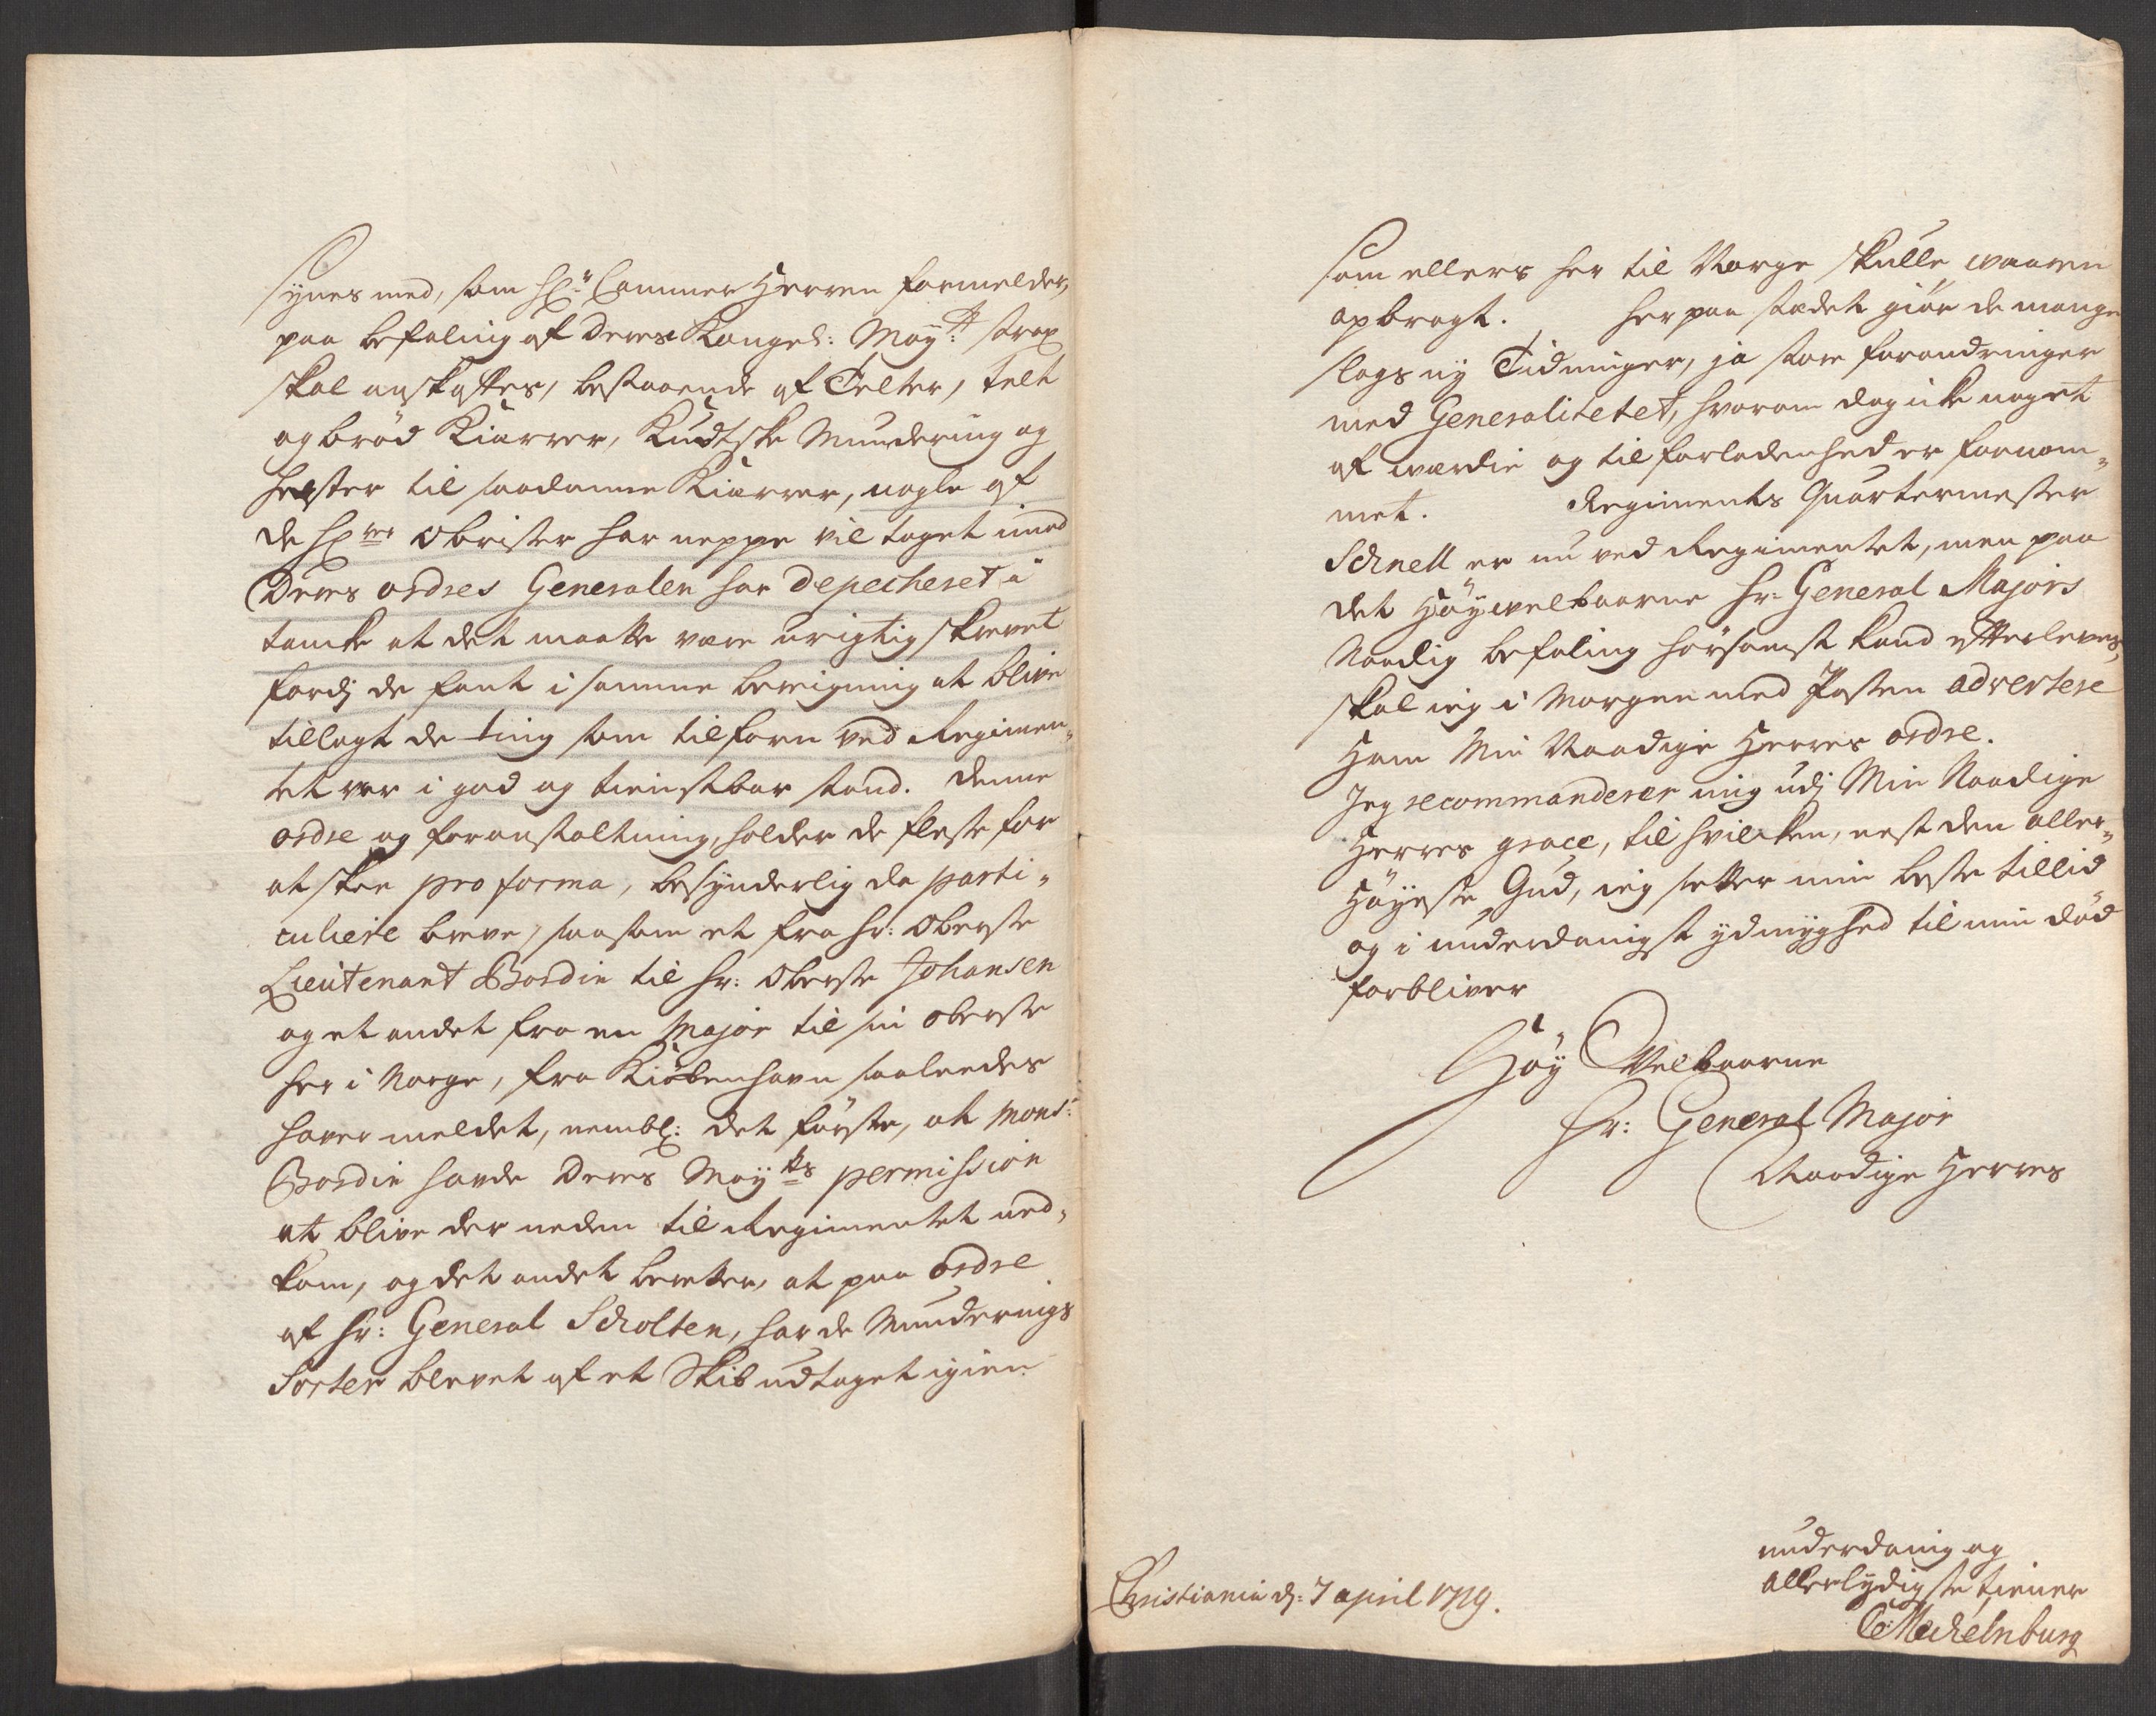 Synes med, som Hr: Cammer Herren formelder,
paa befaling af Deres Kongel: May:tt strax
skal anskaffes, bestaaende af Telter, telt
og brød Kiærrer, Kudtske Mundering og
Hæster til saadanne Kiærrer, nogle af
de Hrrer Obrister har neppe vil taget imod
Deres ordres Generalen har depecheret i
tancke at det maatte være urigtig skrevet
fordj de fant i samme bevigning at blive
tillagt de ting som tilforn ved Regimen„
tet var i god og tienstbar stand. denne
ordre og foranstaltning, holder de fleste for
at skee pro forma, besynderlig da parti„
culiere breve, saasom et fra Hr: Oberste
Lieutenant Bordin til Hr: Oberste Johansen
og et andet fra en Major til sin oberste
her i Norge, fra Kiøbenhavn saaleedes
haver meldet, nembl: det første, at Monsr:
Bordin havde Deres Mayts permission
at blive der neden til Regimentet ned„
kom, og det andet beretter, at paa ordre
af Hr: General Scholten, har de Munderings
Sorter blevet af et Skib udtaget igien
som ellers her til Norge skulle waaren
opbragt. Her paa stedet giør de mange
slags ny Tidninger, ja store forandringer
med Generalitetet, hvorom dog icke noget
af værdie og tilforladenhed er fornom„
met. Regiments Quartermester
Schnell er nu ved Regimentet, men paa
det Høywelbaarne Hr: General Majors
Naadig befaling hørsomst kand efterleves,
skal ieg i Morgen med Posten advertere
Ham Min Naadige Herres ordre.
Jeg recommanderer mig udj Min Naadige
Herres grace, til hvilcken, nest den aller„
Høyeste Gud, ieg setter min beste tillid
og i underdanigst ydmyghed til min død
forbliver
Høy Velbaarne
Hr: General Major
Naadige Herres
underdanig og
allerlydigste tiener
Christiania d: 7 april 1719.
C: Mechelnburg